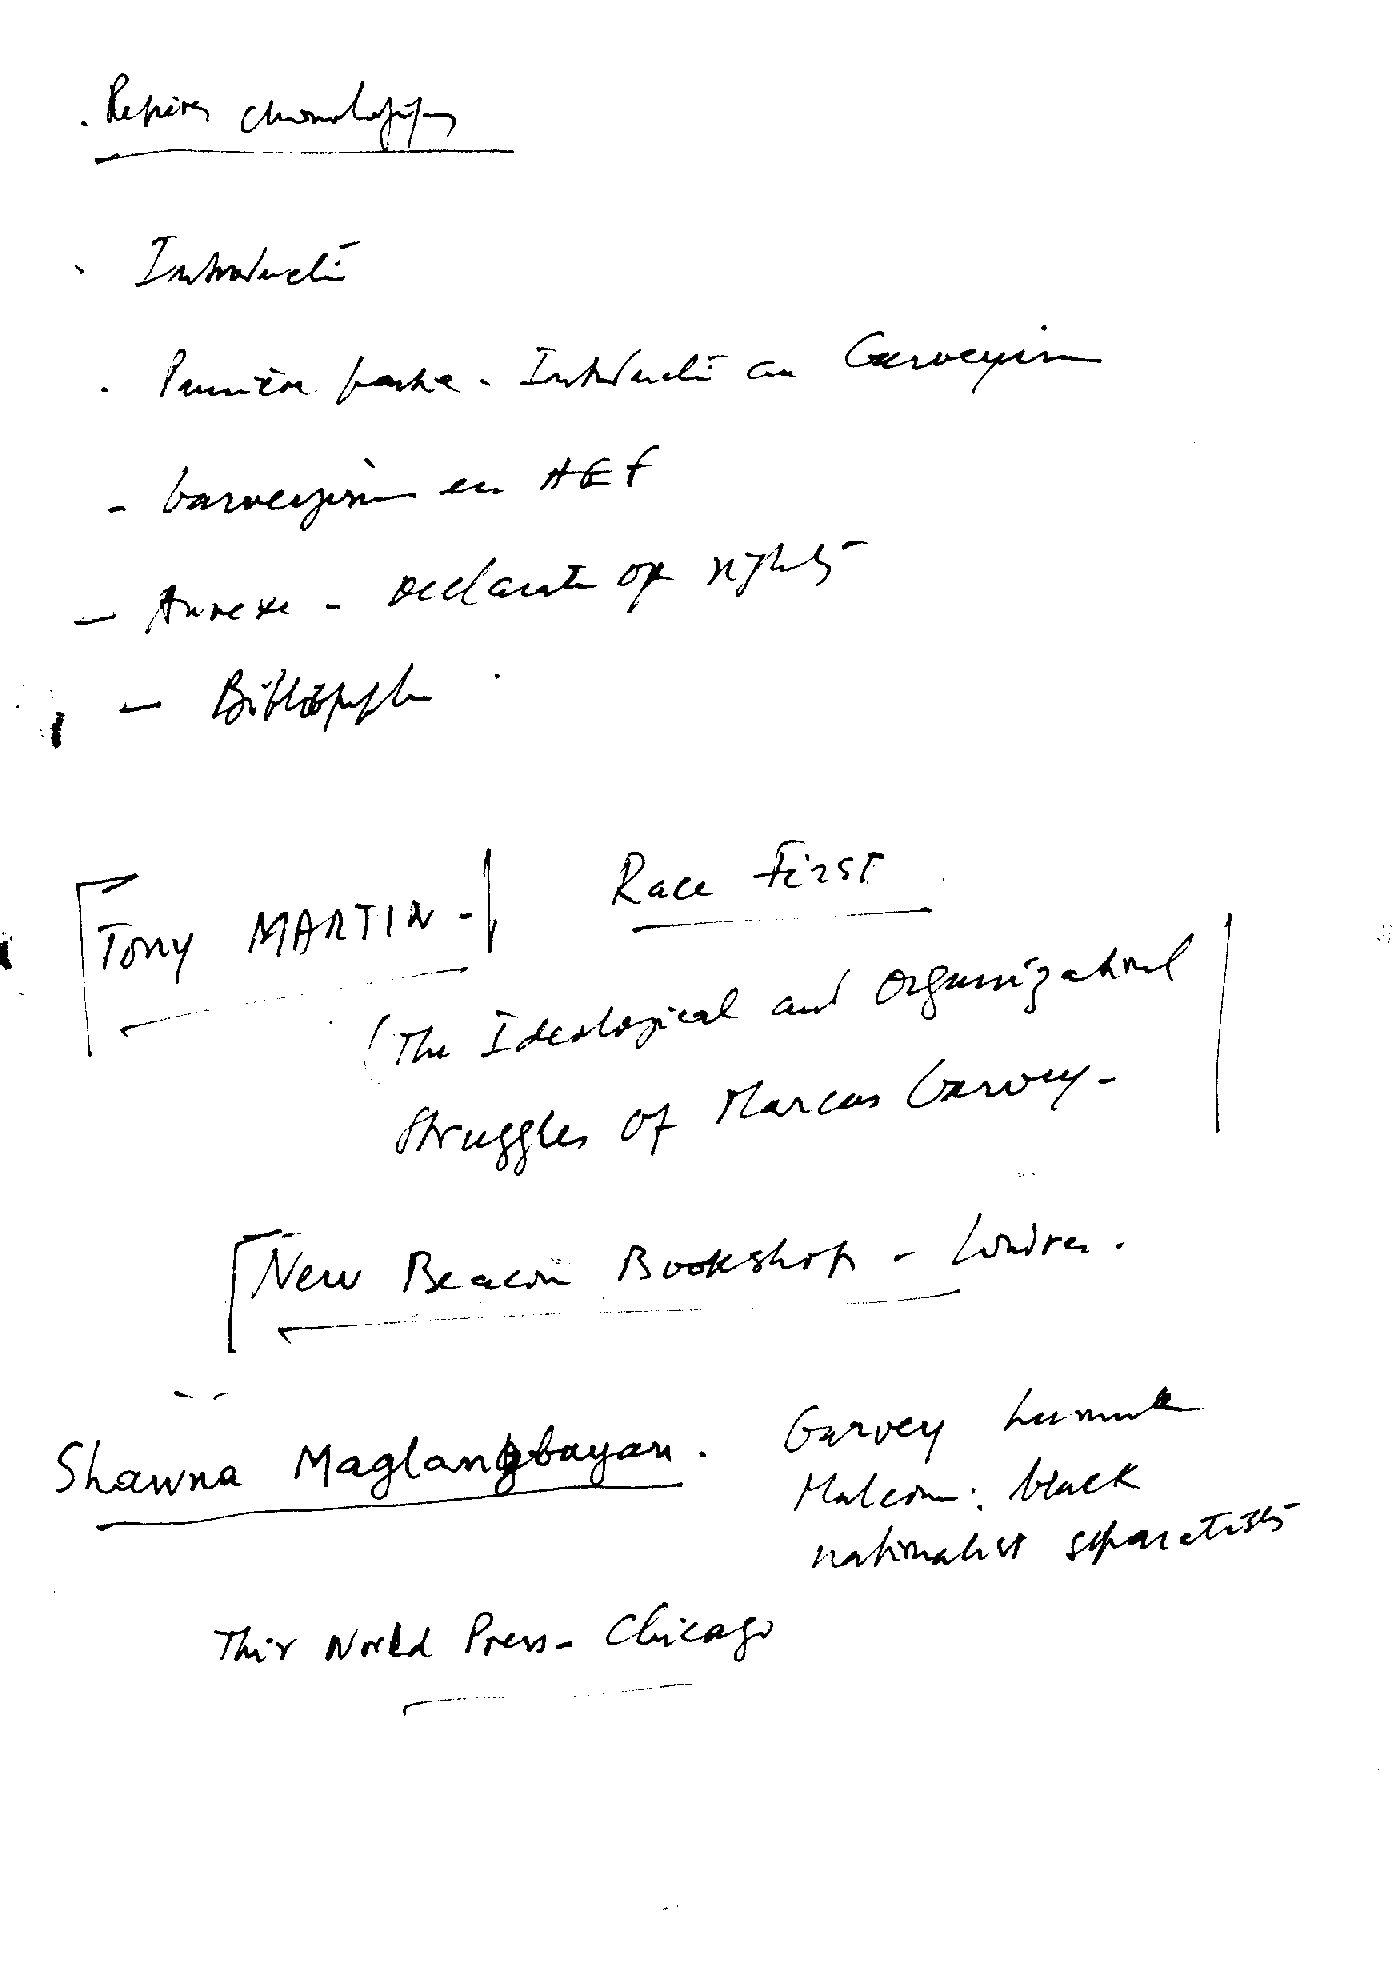 . Repères chronologiques
. Introducti
. Première partie - Introducti au Garveyism
- Garveyism en AEF
- Annexe - Declarati of rights
- Bibliographie
Tony MARTIN - Race First
(The Ideological and Organizational
Struggles of Marcus Garvey -
New Beacon Bookshop - Londres.
Shawna Maglangbayan. Garvey Lumumba
Malcom: black
nationalist separatists
Thir World Press - Chicago